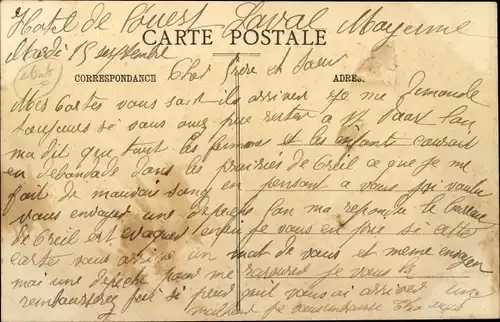 Hotel de l'Ouest Laval Mayenne
Mardi 15 septembre
CARTE POSTALE
CORRESPONDANCE Cher frere et Soeur ADRES
Mes Cartes vous sont ils arriver Je me demande
toujours si vous avez pue rester a
ma dit que tout les femmes et les enfants courait
en debandade dans les prairies de Creil ce que je me
fait de mauvais sang en pensant a vous j'ai voulu
vous envoyer une depeche l'on ma repondu le bureau
de Creil est evaquer enfin je vous en prie si cette
carte vous arrive un mot de vous et meme envoyer
moi une depeche pour me rassurer je vous la
rembourserez j'ai si peur qu'il vous ai arriver une
malheur je vous embrasse